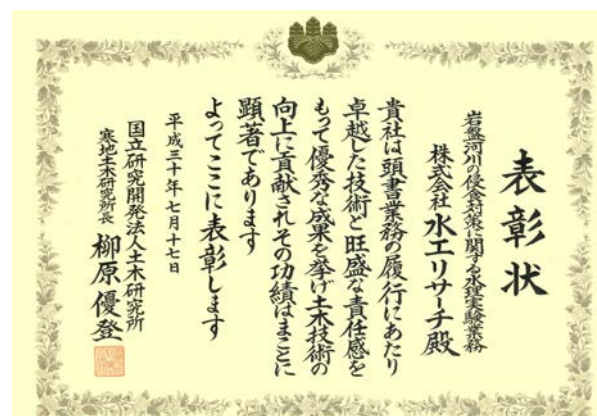 表彰状
岩盤河川の侵食対策に関する水理実験業務
株式会社 水工リサーチ殿
貴社は頭書業務の履行にあたり
卓越した技術と旺盛な責任感を
もって優秀な成果を挙げ土木技術の
向上に貢献されその功績はまことに
顕著であります
よってここに表彰します
平成三十年七月十七日
国立研究開発法人土木研究所
寒地土木研究所長 柳原優登